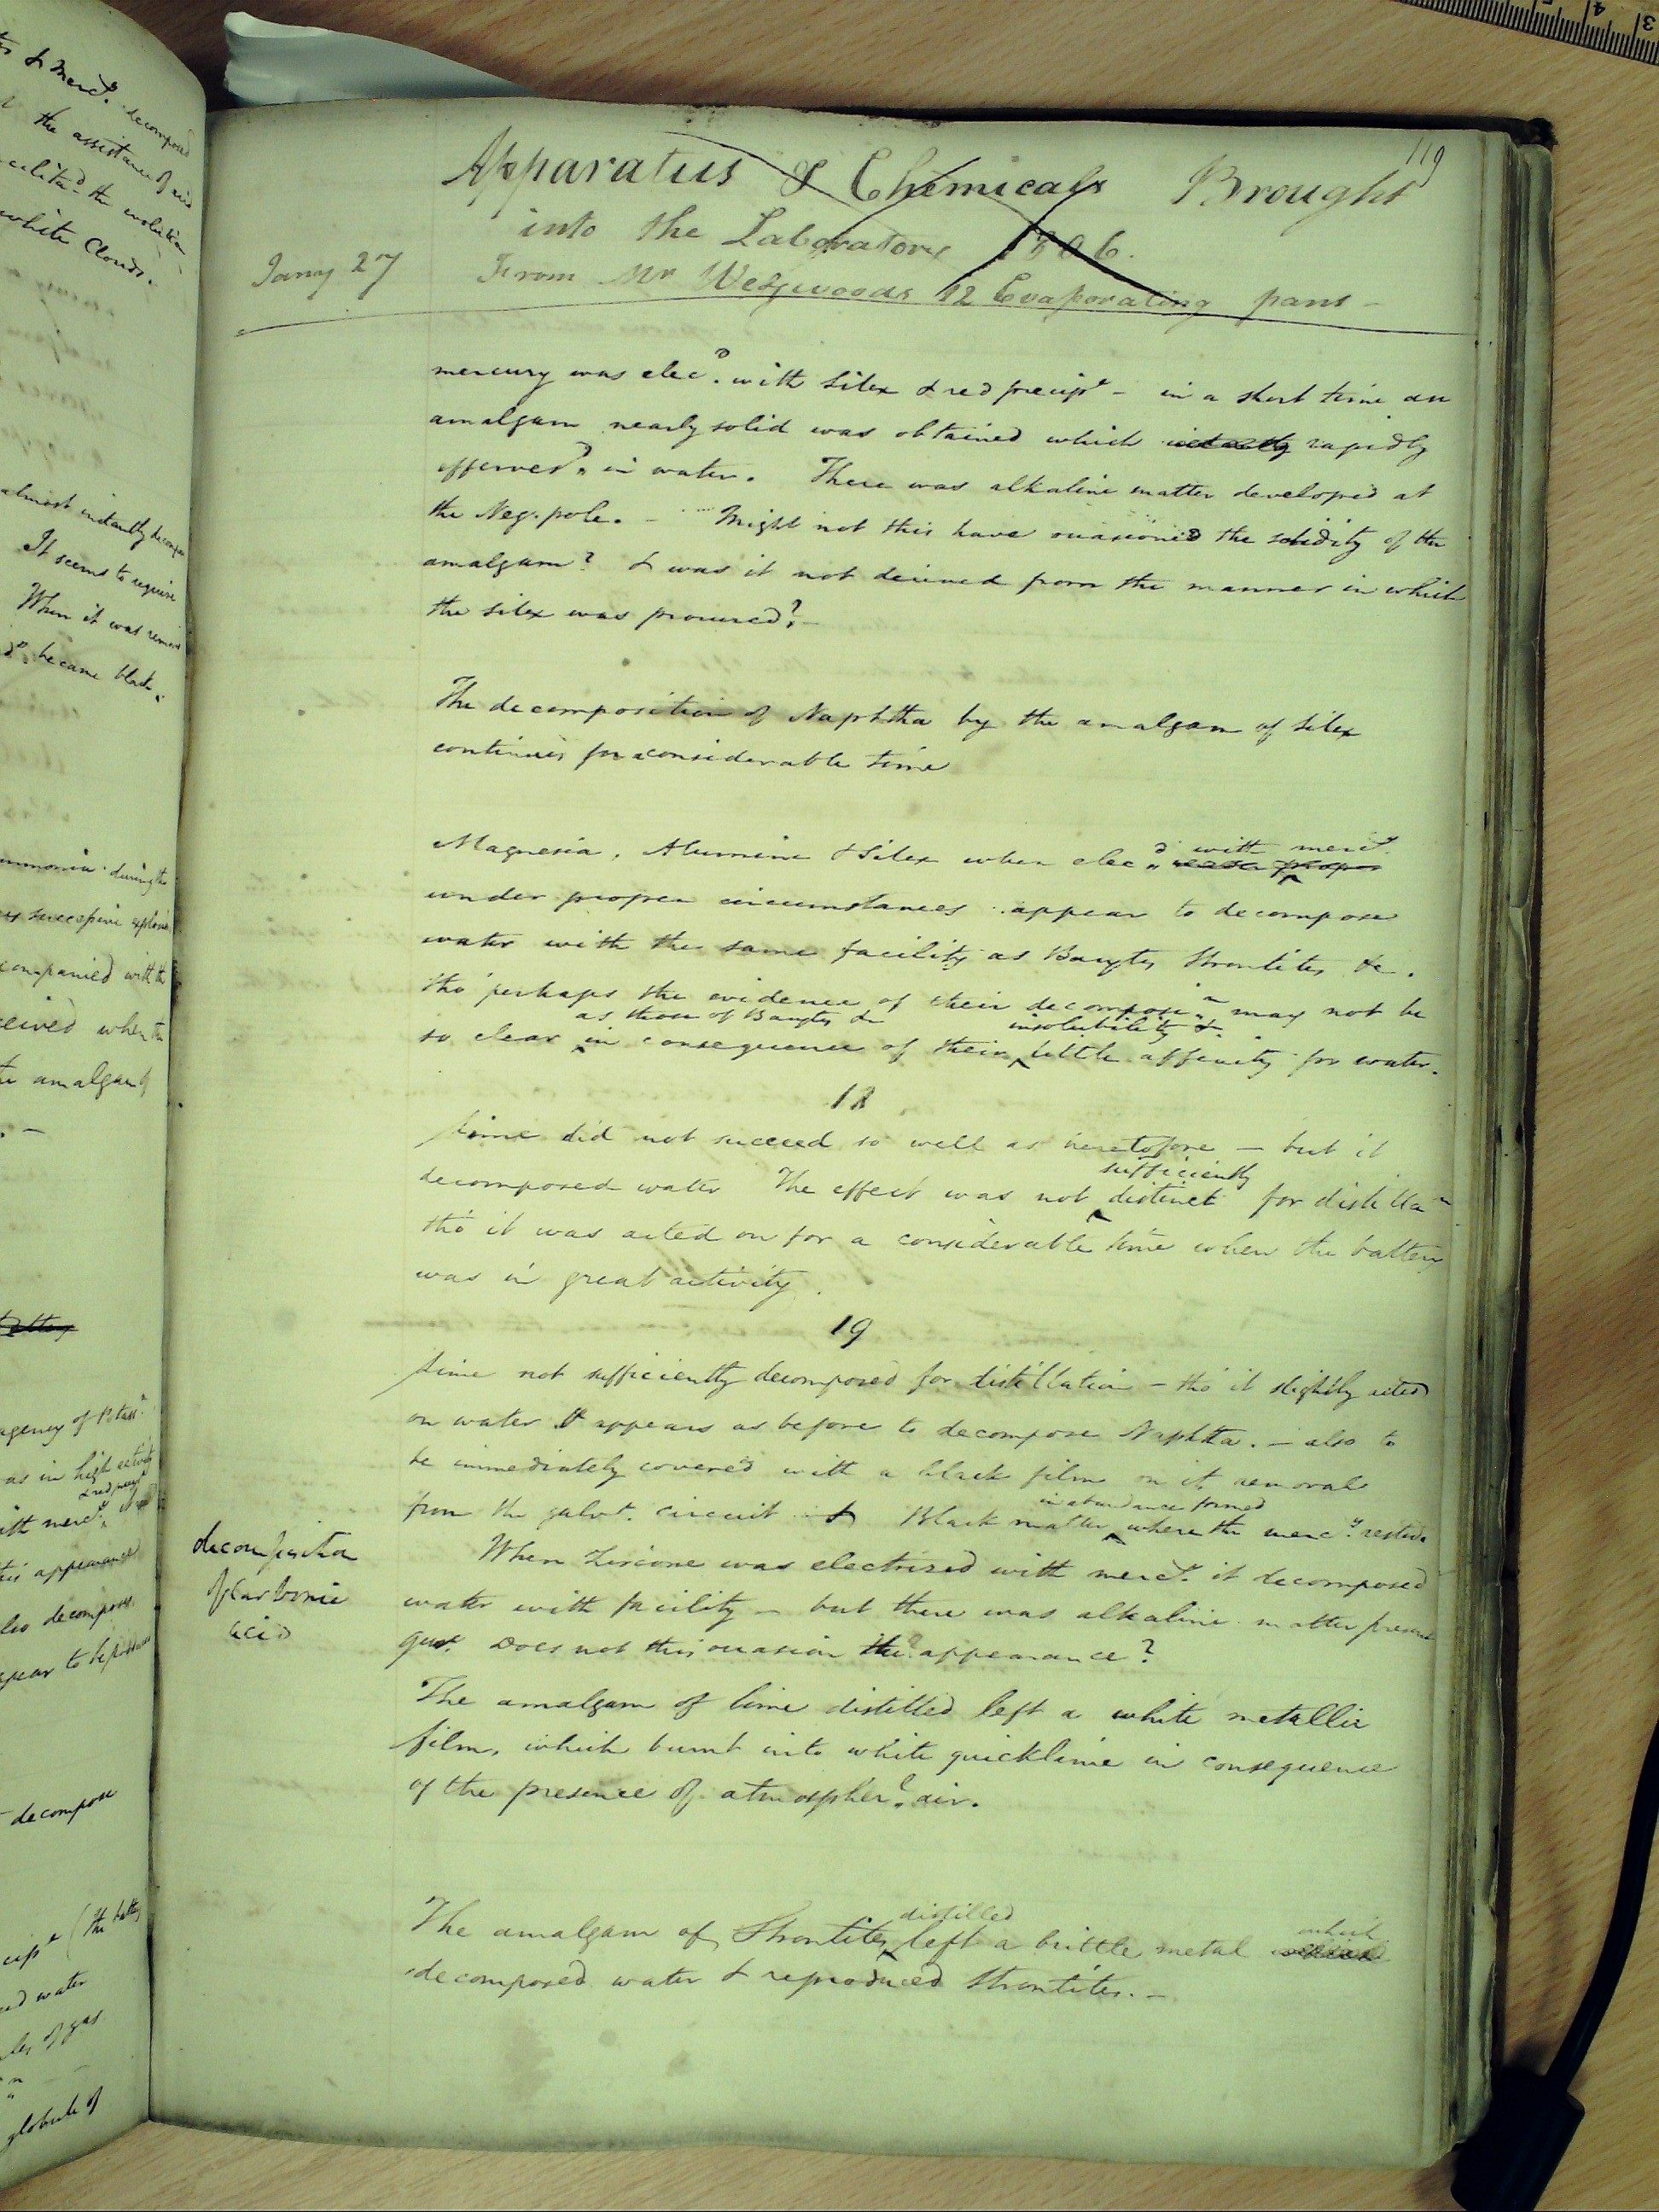 119
Apparatus & Chemicals Brought
into the Laboratory 1806.
Jany 27 From Mr Wedgwoods 12 Evaporating pans -
mercury was elecd. with silex & red precipt - in a short time an
amalgam nearly solid was obtained which rapidly
effervesd. in water. There was alkaline matter developed at
the Neg. pole. - Might not this have occasioned the solidity of the
amalgam? & was it not derived from the manner in which
the silex was procured? -
The decomposition of Naphtha by the amalgam of silex
continues for considerable time
Magnesia, Alumine & Silex when elecd. with mercy.
under proper circumstances appear to decompose
water with the same facility as Barytes Strontites &c.
tho' perhaps the evidence of their decomposin. may not be
so clear as those of Barytes &c in consequence of their insolubility & little affinity for water.
18
Lime did not succeed so well as heretofore - but it
decomposed water The effect was not sufficiently distinct for distillan
tho it was acted on for a considerable time when the battery
was in great activity.
19
Lime not sufficiently decomposed for distillation - tho' it slightly acted
on water It appears as before to decompose Naphtha. - also to
be immediately covered with a black film on it removal
from the galvt. circuit & Black matter in abundance formed where the mercy. rested.
decomposition
of Carbonic
acid
When Zircone was electrised with mercy. it decomposed
water with facility - but there was alkaline matter present
Quy. Does not this occasion the appearance?
The amalgam of lime distilled left a white metallic
film, which burnt into white quicklime in consequence
of the presence of atmospherl. air.
The amalgam of Strontites distilled left a brittle metal which
decomposed water & reproduced Strontites. -